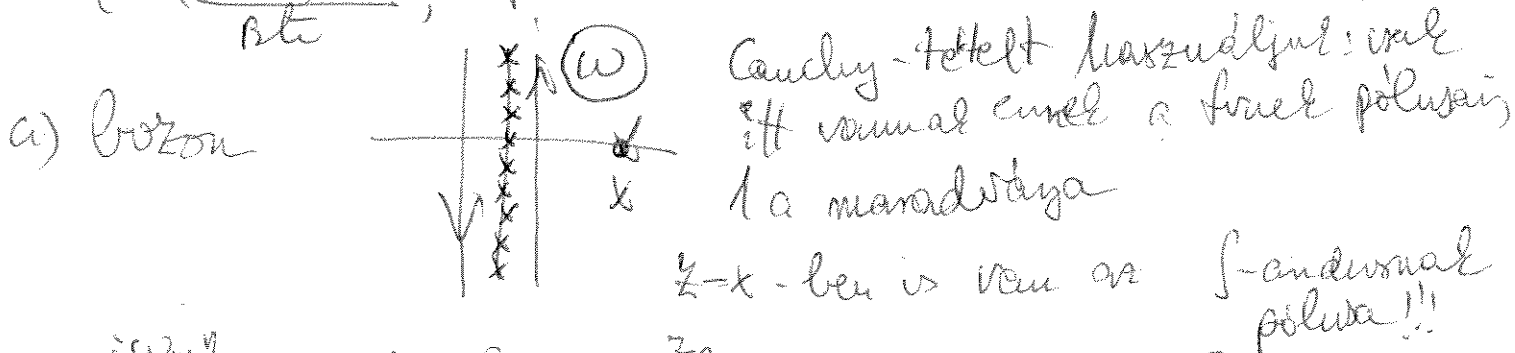 βħ
ω Cauchy-tételt használjuk: csak
a) bozon itt vannak ennek a fvnek pólusai,
x 1 a maradványa
z=x-ben is van az ∫-andusnak
pólusa!!!